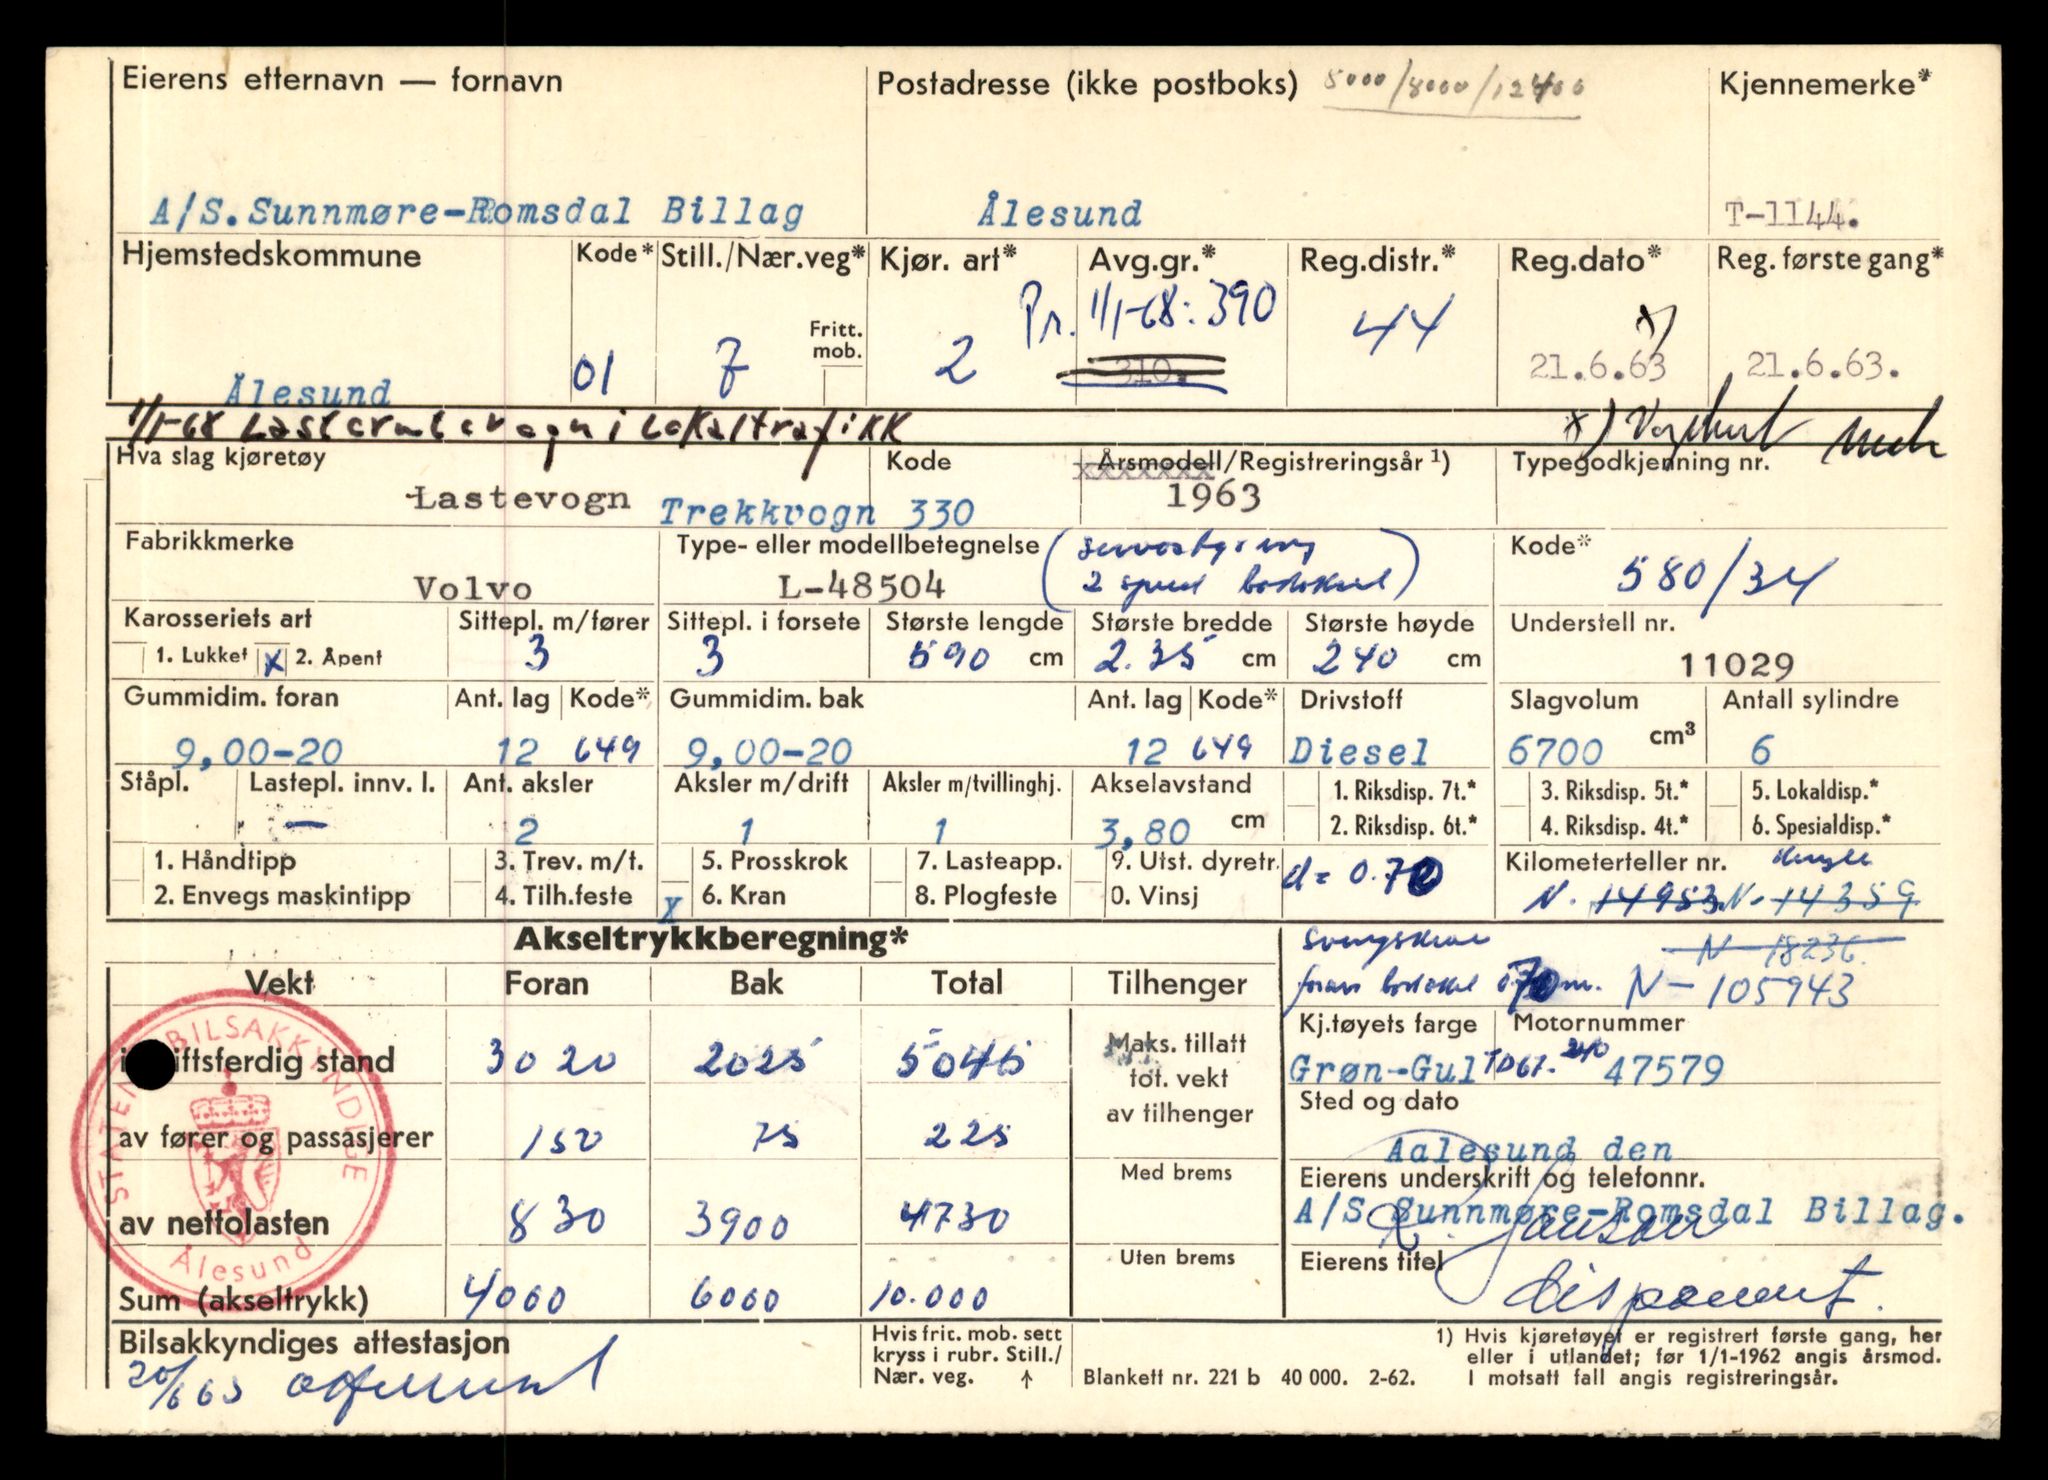 Eierens etternavn — fornavn Postadresse (ikke postboks) 5000/8000/12400 Kjennemerke*
A/S.Sunnmøre-Romsdal Billag Ålesund T-1144.
Hjemstedskommune Kode* Still./Nær.veg* Kjør. art* Avg.gr.* Reg.distr.* Reg.dato* Reg. første gang*
Pr. 1/1-68: 390
Fritt. mob.
Ålesund 01 7 2 310. 44 x) 21.6.63 21.6.63.
1/1-68 i Lokaltrafikk x)
Hva slag kjøretøy Kode Årsmodell/Registreringsår 1) Typegodkjenning nr.
Lastevogn Trekkvogn 330 1963
Fabrikkmerke Type- eller modellbetegnelse (servostyring Kode*
Volvo L-48504 2 speed 580/34
Karosseriets art Sittepl. m/fører Sittepl. i forsete Største lengde Største bredde Største høyde Understell nr.
1. Lukket x 2. Åpent 3 3 590 cm 2.35 cm 240 cm 11029
Gummidim. foran Ant. lag Kode* Gummidim. bak Ant. lag Kode* Drivstoff Slagvolum Antall sylindre
9,00-20 12 649 9,00-20 12 649 Diesel 6700 cm³ 6
Ståpl. Lastepl. innv. l. Ant. aksler Aksler m/drift Aksler m/tvillinghj. Akselavstand 1. Riksdisp. 7t.* 3. Riksdisp. 5t.* 5. Lokaldisp.*
— 2 1 1 3,80 cm 2. Riksdisp. 6t.* 4. Riksdisp. 4t.* 6. Spesialdisp.*
1. Håndtipp 3. Trev. m/t. 5. Prosskrok 7. Lasteapp. 9. Utst. dyretr. d = 0.70 Kilometerteller nr.
2. Envegs maskintipp 4. Tilh.feste x 6. Kran 8. Plogfeste 0. Vinsj N. 14953 N. 14359
Akseltrykkberegning* N 18236.
Vekt Foran Bak Total Tilhenger foran 0.70 m. N - 105943
Kj.tøyets farge Motornummer
i driftsferdig stand 3020 2025 5045 Maks. tillatt tot. vekt av tilhenger Grøn-Gul TD67. 240 47579
Sted og dato
av fører og passasjerer 150 75 225 Aalesund den
Med brems Eierens underskrift og telefonnr.
av nettolasten 830 3900 4730 A/S Sunnmøre-Romsdal Billag.
Uten brems Eierens titel
Sum (akseltrykk) 4000 6000 10.000 disponent.
Bilsakkyndiges attestasjon Hvis frit. mob. sett kryss i rubr. Still./ Nær. veg. ↑ 1) Hvis kjøretøyet er registrert første gang, her
eller i utlandet; før 1/1-1962 angis årsmod.
20/6 63 Blankett nr. 221 b 40 000. 2-62. I motsatt fall angis registreringsår.
STATENS BILSAKKYNDIGE
Ålesund